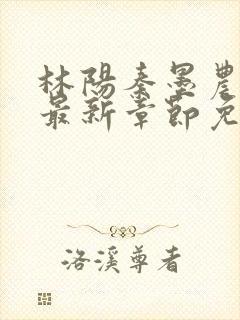 林陽秦墨農
最新章節免
洛溪尊者